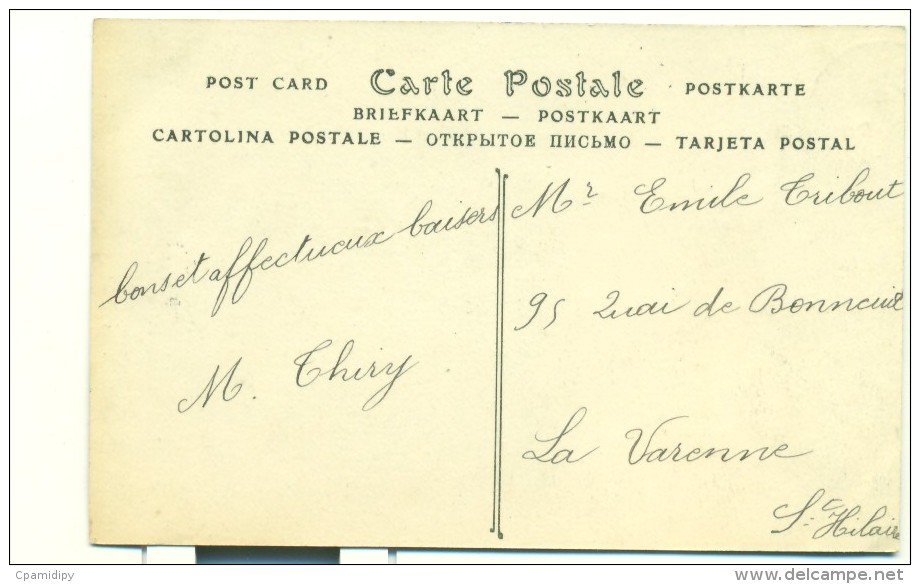 POST CARD Carte Postale POSTKARTE
BRIEFKAART — POSTKAART
CARTOLINA POSTALE — ОТКРЫТОЕ ПИСЬМО — TARJETA POSTAL
bons et affectueux baisers
M. Thiry
Mr Emile Tribout
95 Quai de Bonneuil
La Varenne
St Hilaire
Cpamidipy
delcampe.net